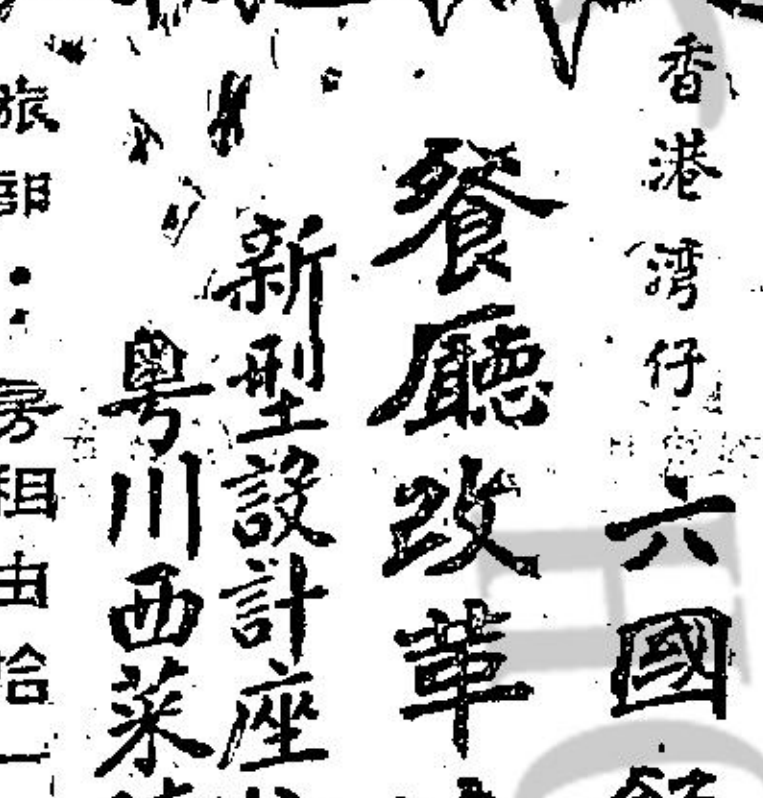 香港湾仔
六國
餐廳改革
新型設計座
粤川西菜
旅部：房租由拾一